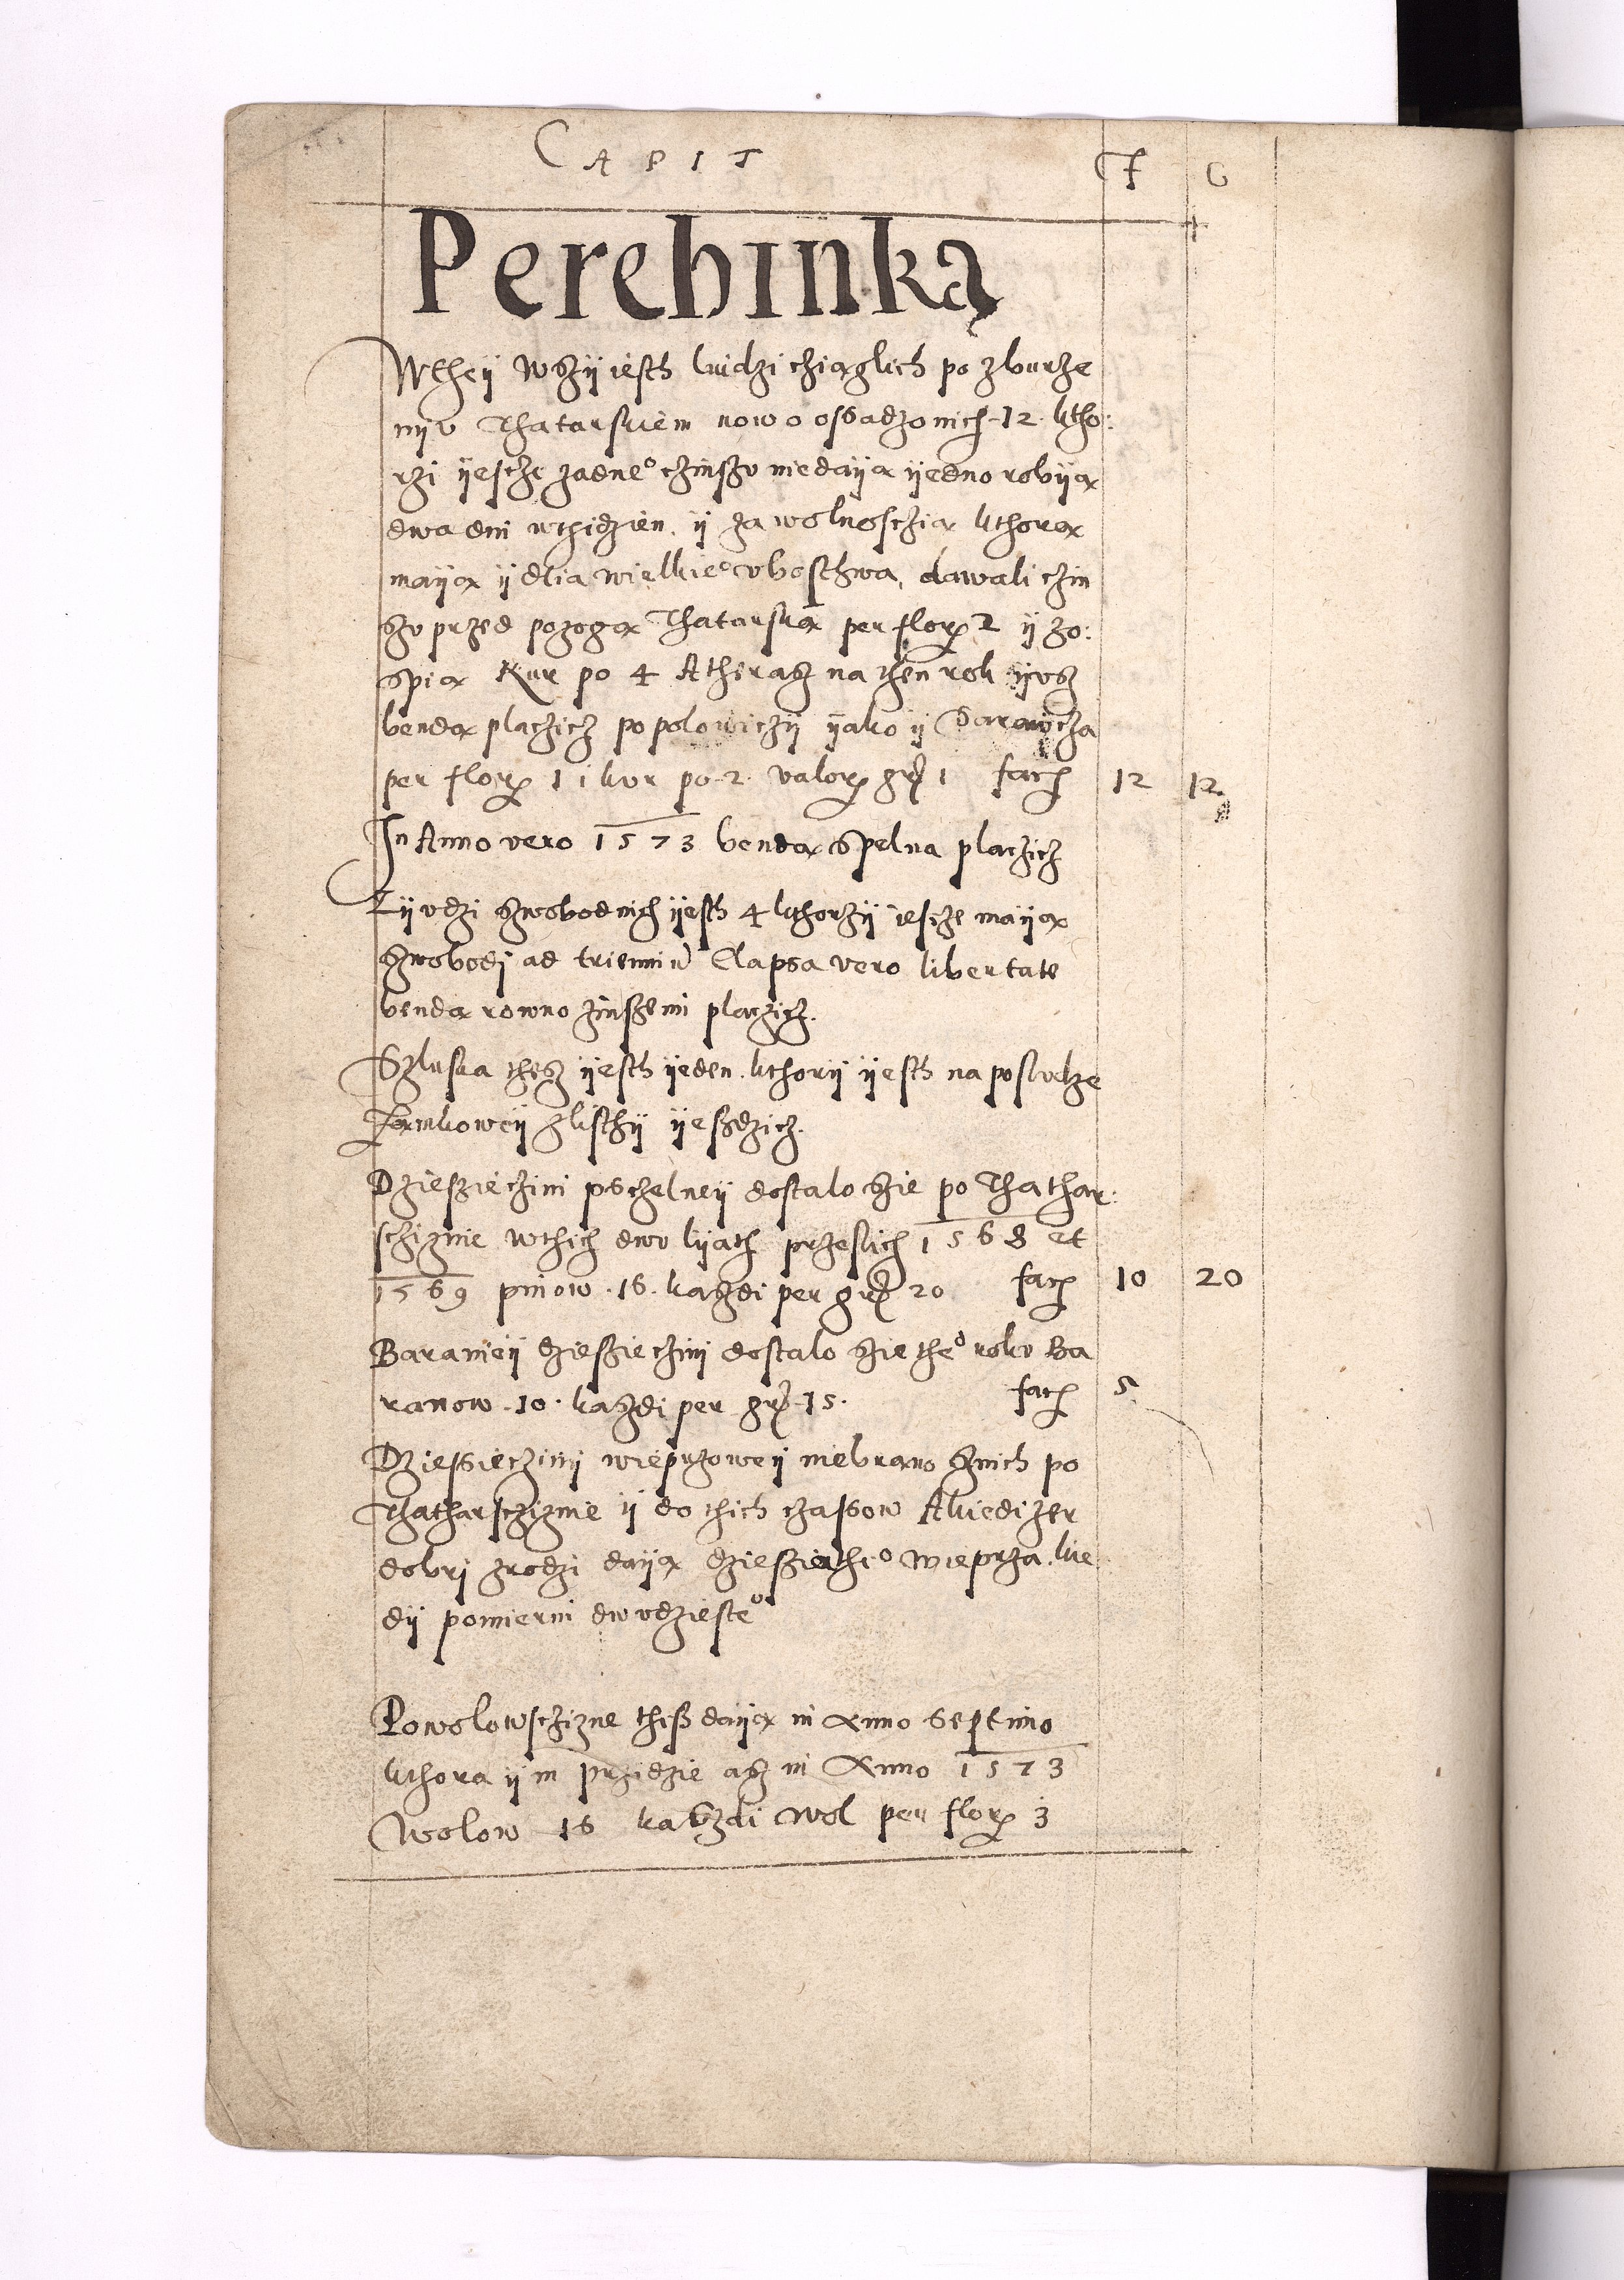 CAPIT F G
Perehinką
Wtheÿ wszÿ iesth ludzi cziąglich po zburze
niÿv Thatarskiem nowo ossadzonich 12 ktho:
rzi ÿescze zadne° czinszv niedaÿą ÿedno robÿą
dwa dni wthidzien ÿ za wolnosczią kthorą
maÿą ÿ dlia wielkie° vbosthwa, dawali czin
szv przed pozogą Thatarską per flor 2 ÿ zo:
spią kur po 4 A theraz na then rok ÿvsz
bendą placzicz po polowiczÿ ÿako ÿ Darowcza
per flor 1 i kvr po 2 valor gr 1 facit 12 12
In Anno vero 1573 bendą spelna placzicz
Lÿvdzi szwobodnich ÿesth 4 kthorzÿ iescze maÿą
szwobodi ad trienniu Elapsa vero libertate
bendą rowno zinszemi placzicz.
Szluska thesz ÿesth ÿeden kthorÿ ÿesth na posludze
Zamkoweÿ zlisthÿ ÿezdzicz.
Dzieszieczini psczelneÿ dostalo szie po Thathar:
sczÿznie wthich dwv lÿath przeslich 1568 et
1569 pniow 16 kazdi per gr 20 facit 10 20
Baranieÿ dziesziecziny dostalo szie the° rokv Ba
ranow 10 kazdi per gr 15. facit 5
Dziesiecziny wieprzoweÿ niebrano znich po
Thatharsczÿznie ÿ do thich czassow A kiedi zer
dobri zrodzi daÿą dziesziathe° wieprza kie
dÿ pomierni dwvdzieste°
Powolowsczizne thesz daÿą in Anno septimo
kthora ÿm przidzie asz in Anno 1573
Wolow 16 kaszdi wol per flor 3